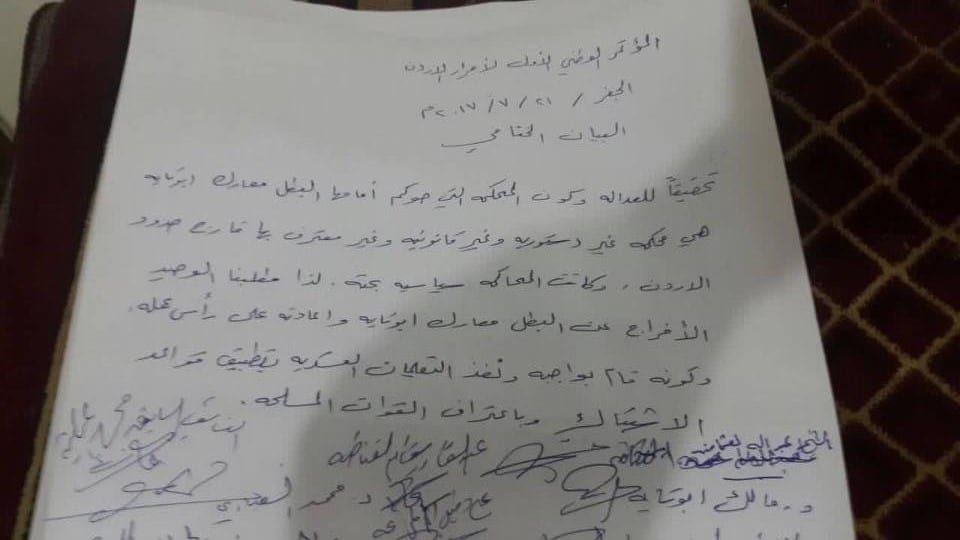 المؤتمر الوطني الأول لأحرار الاردن
الجفر / ٢١ / ٧ / ٢٠١٧م
البيان الختامي
تحقيقاً للعداله وكون المحكمه التي حوكم أمامها البطل معارك ابوتايه
هي محكمه غير دستوريه وغير قانونيه وغير معترف بها خارج حدود
الاردن. وكانت المحاكمه سياسيه بحته. لذا مطلبنا الوحيد
الأفراج عن البطل معارك ابوتايه واعادته على رأس عمله.
وكونه قام بواجبه ونفذ التعليمات العسكريه بتطبيق قواعد
الاشتباك وباعتراف القوات المسلحه.
د. مالك ابوتايه
د. محمد